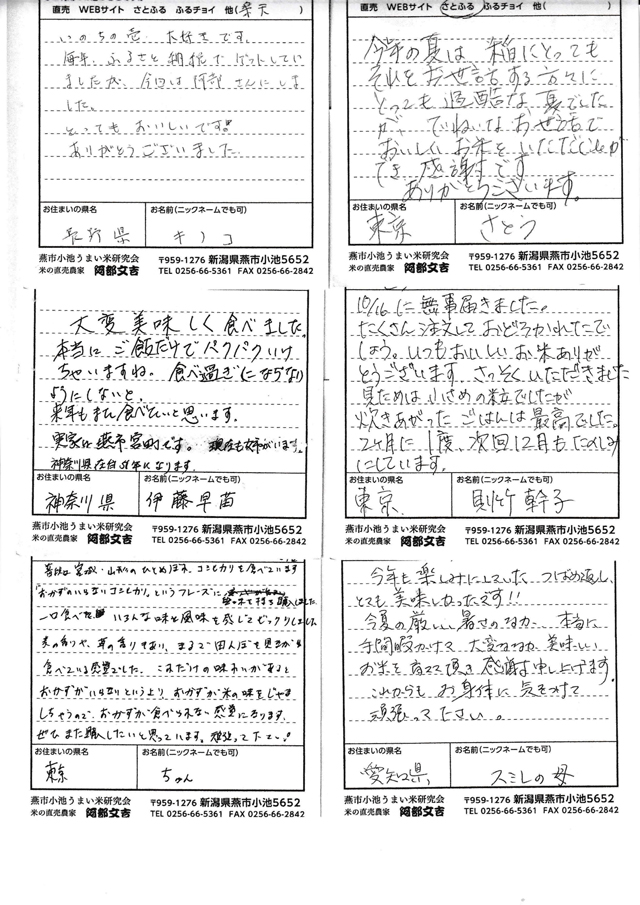 直売 WEBサイト さとふる ふるチョイ 他(楽天
いのちの壱 大好きです。
毎年、ふるさと納税でゲットしてい
ましたが、今回は阿部さんにしま
した。
とってもおいしいです!!
ありがとうございました。
お住まいの県名 お名前(ニックネームでも可)
長野県 キノコ
燕市小池うまい米研究会 〒959-1276 新潟県燕市小池5652
米の直売農家 阿部文吉 TEL 0256-66-5361 FAX 0256-66-2842
直売 WEBサイト さとふる ふるチョイ 他(
今年の夏は、稲にとっても
それをお世話する方々に
とっても過酷な夏でした
が、ていねいなお世話で
おいしいお米をいただくことが
でき感謝です
ありがとうございます。
お住まいの県名 お名前(ニックネームでも可)
東京 さとう
燕市小池うまい米研究会 〒959-1276 新潟県燕市小池5652
米の直売農家 阿部文吉 TEL 0256-66-5361 FAX 0256-66-2842
大変美味しく食べました。
本当にご飯だけでパクパクいけ
ちゃいますね。食べ過ぎにならない
ようにしないと。
来年もまた食べたいと思います。
実家は燕市宮町です。現在も姉がいます。
神奈川県在住51年になります。
お住まいの県名 お名前(ニックネームでも可)
神奈川県 伊藤早苗
燕市小池うまい米研究会 〒959-1276 新潟県燕市小池5652
米の直売農家 阿部文吉 TEL 0256-66-5361 FAX 0256-66-2842
10/16に無事届きました。
たくさん注文しておどろかれたで
しょう。いつもおいしいお米ありが
とうございます。さっそくいただきました
見ためは小さめの粒でしたが
炊きあがったごはんは最高でした。
2ヶ月に1度、次回12月もたのしみ
にしています。
お住まいの県名 お名前(ニックネームでも可)
東京 則竹幹子
燕市小池うまい米研究会 〒959-1276 新潟県燕市小池5652
米の直売農家 阿部文吉 TEL 0256-66-5361 FAX 0256-66-2842
普段は宮城・山形のひとめぼれ、コシヒカリを食べています
「おかずのいらないコシヒカリ」というフレーズに
興味を持ち購入しました
一口食べた いろんな味と風味を感じてビックリしました
麦の香りや、草の香りもあり、まるで田んぼを見ながら
食べている感覚でした。これだけの味わいがあると
おかずがいらないというより、おかずが米の味をじゃま
しちゃうので、おかずが食べられない感覚になります。
ぜひまた購入したいと思っています。頑張って下さい!
お住まいの県名 お名前(ニックネームでも可)
東京 ちゅん
燕市小池うまい米研究会 〒959-1276 新潟県燕市小池5652
米の直売農家 阿部文吉 TEL 0256-66-5361 FAX 0256-66-2842
今年も楽しみにしていたつばめ返し、
とても美味しかったです!!
今夏の厳しい暑さのなか、本当に
手間暇かけて大変ななか、美味しい
お米を育てて頂き感謝申し上げます。
これからもお身体に気をつけて
頑張ってください。
お住まいの県名 お名前(ニックネームでも可)
愛知県 スミレの母
燕市小池うまい米研究会 〒959-1276 新潟県燕市小池5652
米の直売農家 阿部文吉 TEL 0256-66-5361 FAX 0256-66-2842